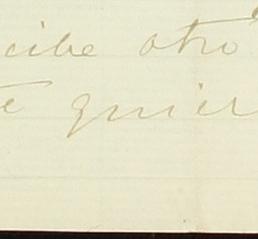 cibe otro
te quier